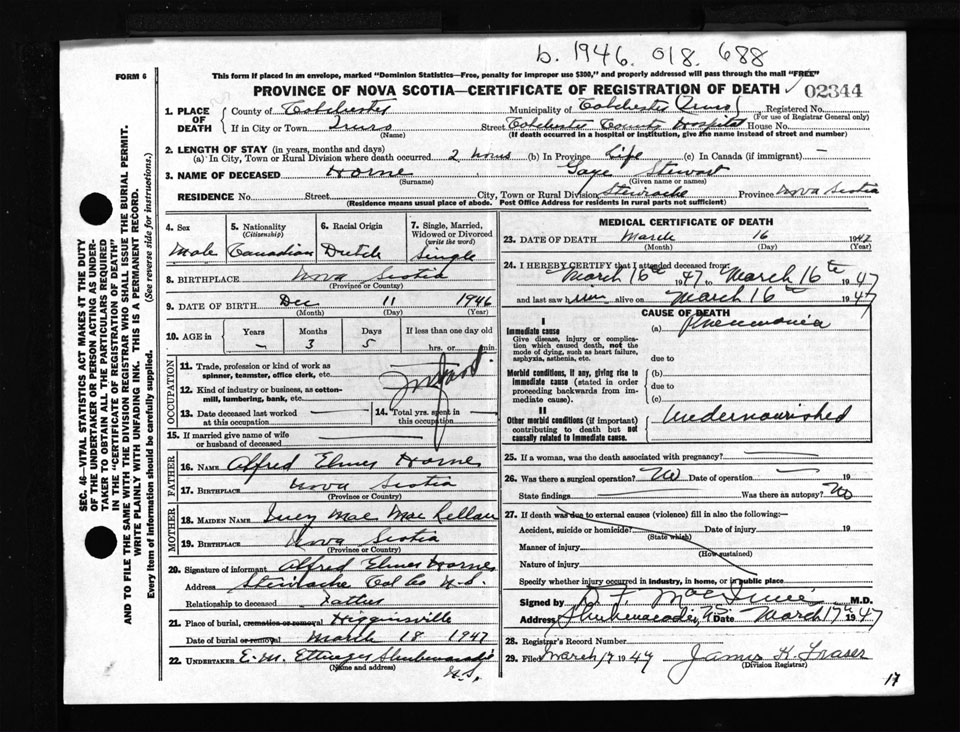 b. 1946. 018. 688
FORM 6
This form if placed in an envelope, marked "Dominion Statistics—Free, penalty for improper use $300," and properly addressed will pass through the mail "FREE"
PROVINCE OF NOVA SCOTIA—CERTIFICATE OF REGISTRATION OF DEATH ✓ 02344
1. PLACE OF DEATH
County of Colchester Municipality of Colchester (Truro) Registered No.
(For use of Registrar General only)
If in City or Town Truro Street Colchester County Hospital House No.
(Name) (If death occurred in a hospital or institution, give the name instead of street and number)
2. LENGTH OF STAY (in years, months and days)
(a) In City, Town or Rural Division where death occurred 2 hours (b) In Province Life (c) In Canada (if immigrant) —
3. NAME OF DECEASED Horne Gaye Stewart
(Surname) (Given name or names)
RESIDENCE No. Street City, Town or Rural Division Stewiacke Province Nova Scotia
(Residence means usual place of abode. Post Office Address for residents in rural parts not sufficient)
4. Sex
Male
5. Nationality
(Citizenship)
Canadian
6. Racial Origin
Dutch
7. Single, Married, Widowed or Divorced
(write the word)
Single
8. BIRTHPLACE Nova Scotia
(Province or Country)
9. DATE OF BIRTH Dec 11 1946
(Month) (Day) (Year)
10. AGE in
Years Months Days If less than one day old
– 3 5 hrs. or min.
OCCUPATION
11. Trade, profession or kind of work as
spinner, teamster, office clerk, etc.
12. Kind of industry or business, as cotton-
mill, lumbering, bank, etc.
13. Date deceased last worked
at this occupation
14. Total yrs. spent in
this occupation
15. If married give name of wife
or husband of deceased
FATHER
16. NAME Alfred Elmer Horne
17. BIRTHPLACE Nova Scotia
(Province or Country)
MOTHER
18. MAIDEN NAME Mae MacLellan
19. BIRTHPLACE Nova Scotia
(Province or Country)
20. Signature of informant Alfred Elmer Horne
Address Stewiacke Col Co N.S.
Relationship to deceased Father
21. Place of burial, cremation or removal Higginsville
Date of burial or removal March 18 1947
22. UNDERTAKER E. M. Ettinger Shubenacadie
(Name and address)
N.S.
MEDICAL CERTIFICATE OF DEATH
23. DATE OF DEATH March 16 1947
(Month) (Day) (Year)
24. I HEREBY CERTIFY that I attended deceased from
March 16th 1947 to March 16th 1947
and last saw him alive on March 16th 1947
CAUSE OF DEATH
I
Immediate cause
Give disease, injury or complica-
tion which caused death, not the
mode of dying, such as heart failure,
asphyxia, asthenia, etc.
(a) Pneumonia
due to
Morbid conditions, if any, giving rise to
immediate cause (stated in order
proceeding backwards from im-
mediate cause).
(b)
due to
(c)
II
Other morbid conditions (if important)
contributing to death but not
causally related to immediate cause.
Undernourished
25. If a woman, was the death associated with pregnancy?
26. Was there a surgical operation? No Date of operation 19
State findings Was there an autopsy? No
27. If death was due to external causes (violence) fill in also the following:—
Accident, suicide or homicide? Date of injury 19
(State which)
Manner of injury
(How sustained)
Nature of injury
Specify whether injury occurred in industry, in home, or in public place
Signed by M.D.
Address Shubenacadie, NS Date March 17th 1947
28. Registrar's Record Number
29. Filed March 17 1947 James K. Fraser
(Division Registrar)
17
SEC. 46—VITAL STATISTICS ACT MAKES IT THE DUTY
OF THE UNDERTAKER OR PERSON ACTING AS UNDER-
TAKER TO OBTAIN ALL THE PARTICULARS REQUIRED
IN THE "CERTIFICATE OF REGISTRATION OF DEATH"
AND TO FILE THE SAME WITH THE DIVISION REGISTRAR WHO SHALL ISSUE THE BURIAL PERMIT.
WRITE PLAINLY WITH UNFADING INK. THIS IS A PERMANENT RECORD.
Every item of information should be carefully supplied. (See reverse side for instructions.)